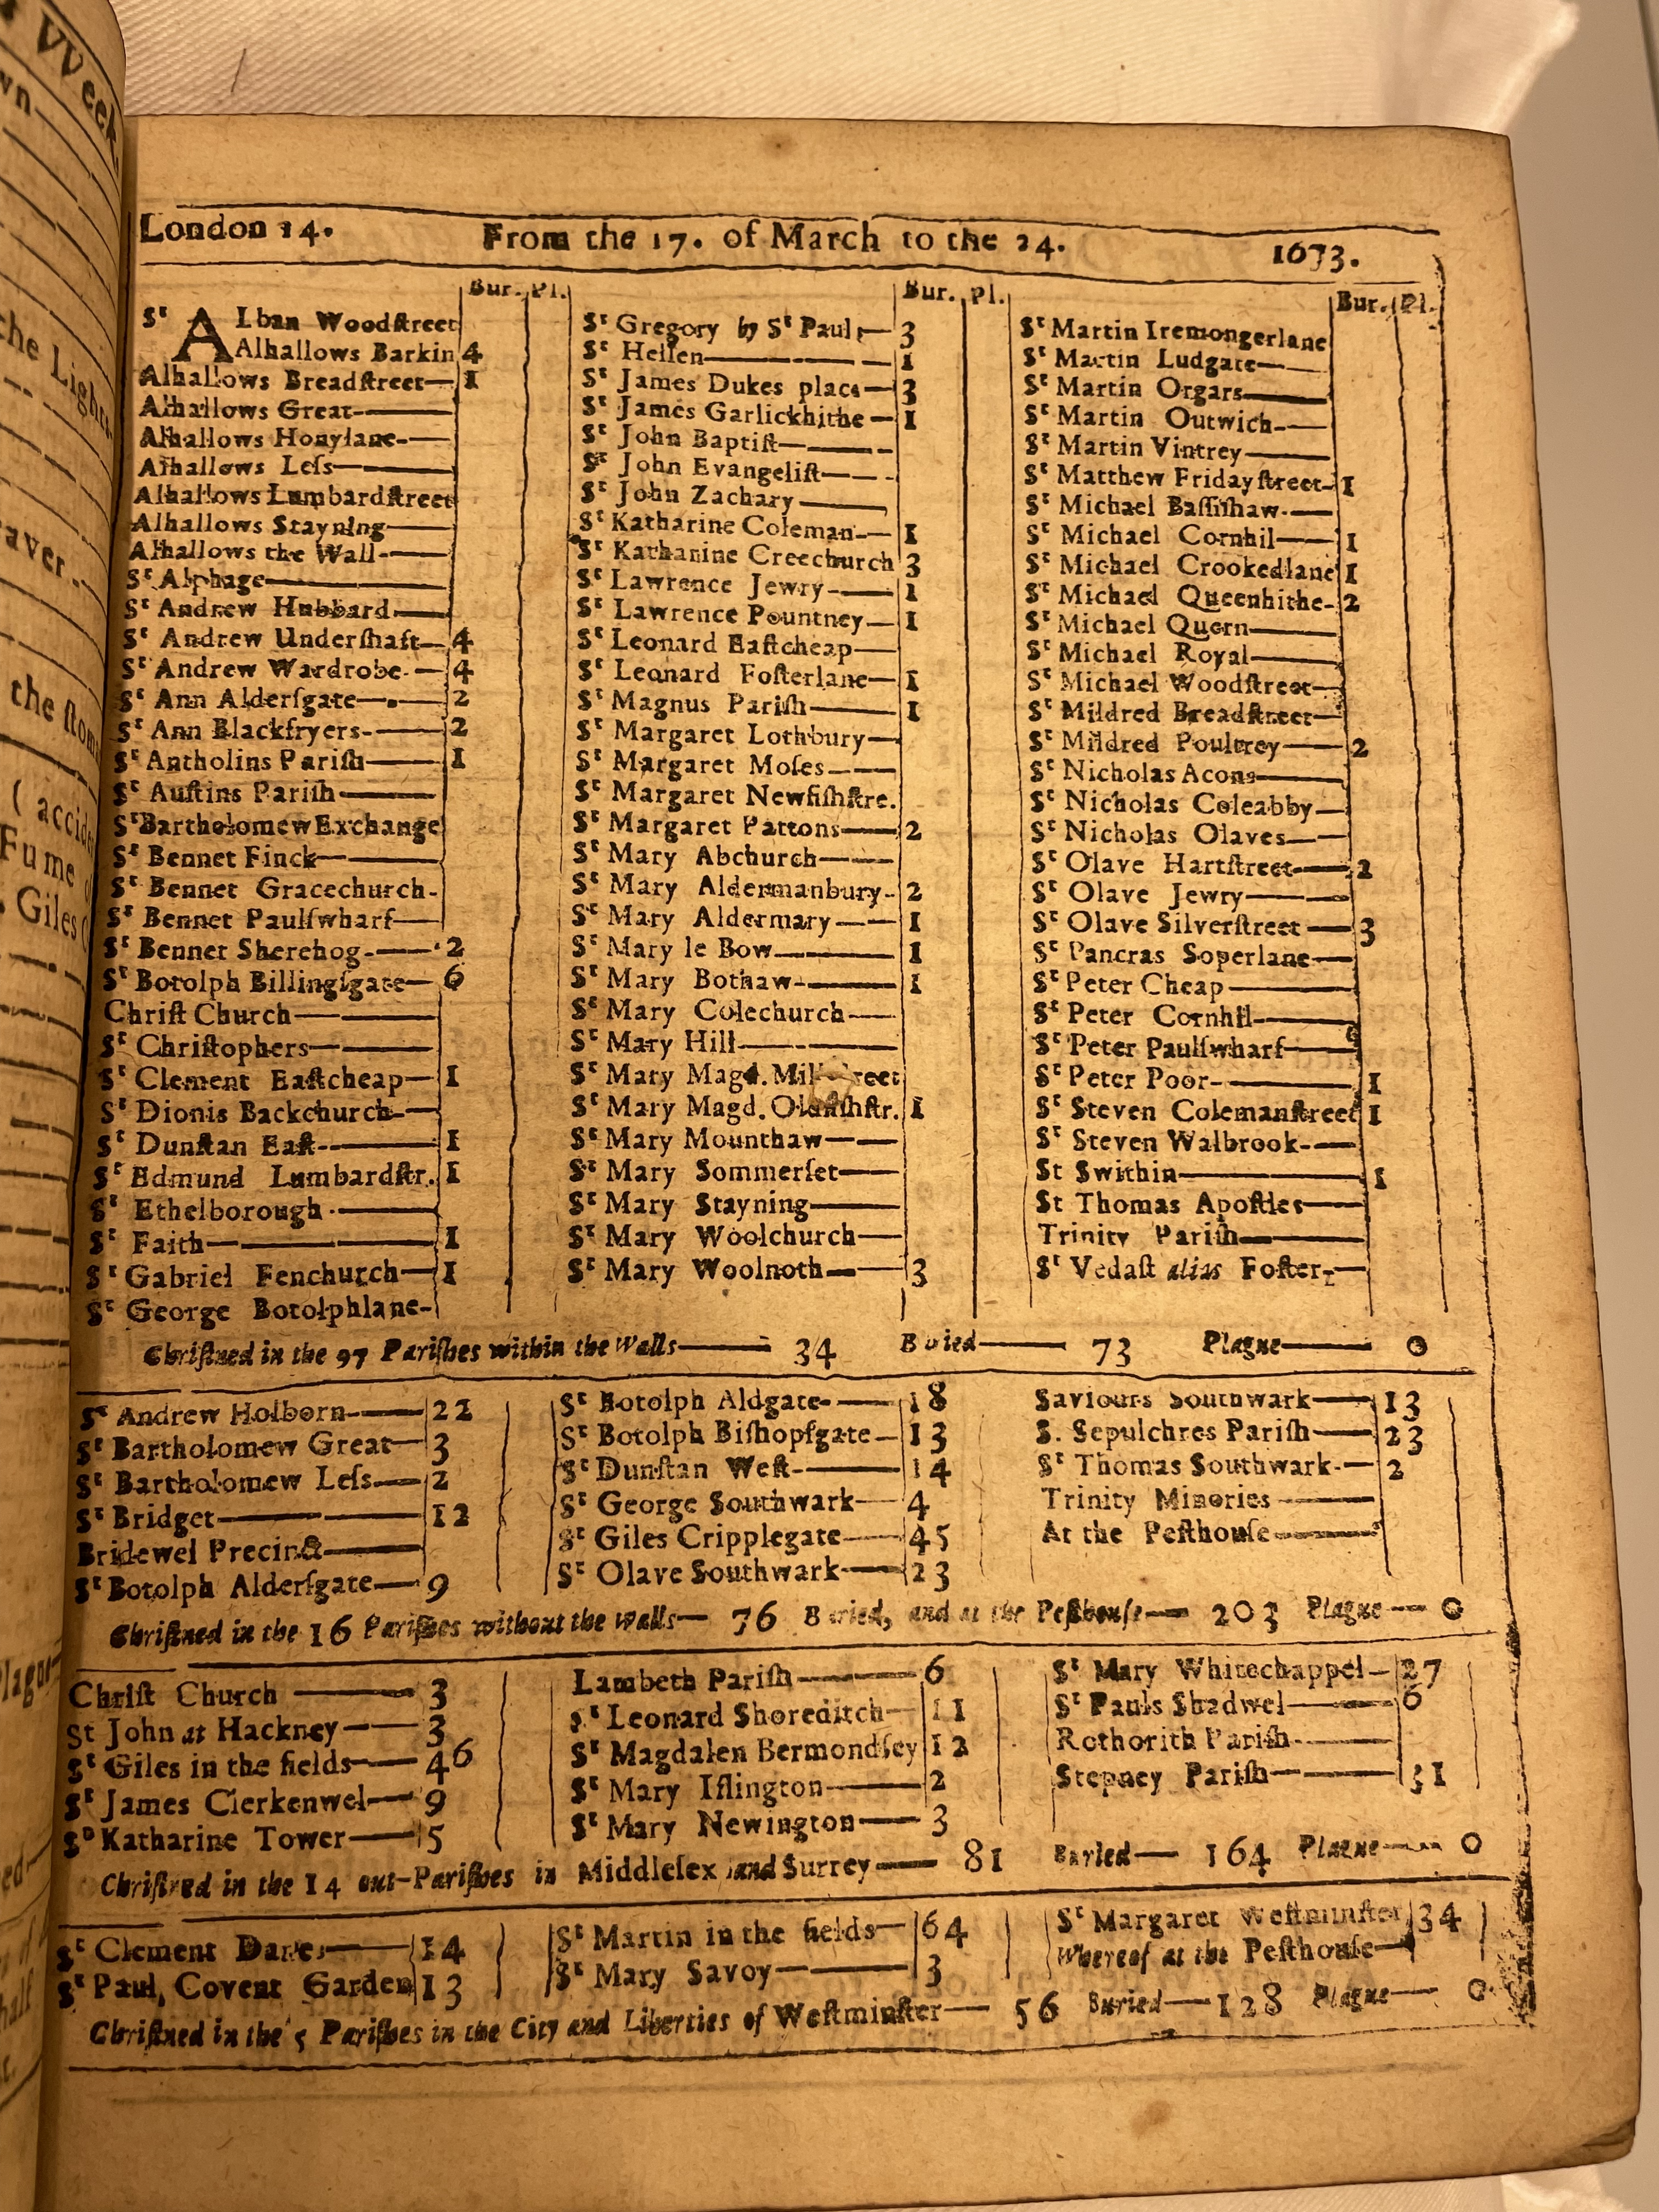 London 14. From the 17. of March to the 24. 1673.
Bur. Pl.
St ALban Woodstreet
Alhallows Barkin 4
Alhallows Breadstreet— 1
Alhallows Great—
Alhallows Honylane-—
Alhallows Less—
Alhallows Lumbardstreet
Alhallows Stayning—
Alhallows the Wall-—
St Alphage—
St Andrew Hubbard—
St Andrew Undershaft— 4
St Andrew Wardrobe-— 4
St Ann Aldersgate— 2
St Ann Blackfryers-— 2
St Antholins Parish— 1
St Austins Parish—
St Bartholomew Exchange
St Bennet Finck—
St Bennet Gracechurch-
St Bennet Paulswharf—
St Bennet Sherehog-— 2
St Botolph Billingsgate— 6
Christ Church—
St Christophers—
St Clement Eastcheap— 1
St Dionis Backchurch—
St Dunstan East-— 1
St Edmund Lumbardstr. 1
St Ethelborough—
St Faith— 1
St Gabriel Fenchurch— 1
St George Botolphlane-
Bur. Pl.
St Gregory by St Pauls— 3
St Hellen— 1
St James Dukes place— 3
St James Garlickhithe— 1
St John Baptist—
St John Evangelist—
St John Zachary—
St Katharine Coleman-— 1
St Katharine Creechurch 3
St Lawrence Jewry-— 1
St Lawrence Pountney— 1
St Leonard Eastcheap—
St Leonard Fosterlane— 1
St Magnus Parish— 1
St Margaret Lothbury—
St Margaret Moses—
St Margaret Newfishstre.
St Margaret Pattons— 2
St Mary Abchurch—
St Mary Aldermanbury- 2
St Mary Aldermary— 1
St Mary le Bow— 1
St Mary Bothaw-— 1
St Mary Colechurch—
St Mary Hill—
St Mary Magd.
St Mary Magd. 1
St Mary Mounthaw—
St Mary Sommerset—
St Mary Stayning—
St Mary Woolchurch—
St Mary Woolnoth— 3
Bur. Pl.
St Martin Iremongerlane
St Martin Ludgate—
St Martin Orgars—
St Martin Outwich-—
St Martin Vintrey—
St Matthew Fridaystreet- 1
St Michael Bassishaw-—
St Michael Cornhil— 1
St Michael Crookedlane 1
St Michael Queenhithe- 2
St Michael Quern—
St Michael Royal—
St Michael Woodstreet—
St Mildred Breadstreet—
St Mildred Poultrey— 2
St Nicholas Acons—
St Nicholas Coleabby—
St Nicholas Olaves—
St Olave Hartstreet— 2
St Olave Jewry—
St Olave Silverstreet— 3
St Pancras Soperlane—
St Peter Cheap—
St Peter Cornhil—
St Peter Paulswharf—
St Peter Poor-— 1
St Steven Colemanstreet 1
St Steven Walbrook-—
St Swithin— 1
St Thomas Apostles—
Trinity Parish—
St Vedast alias Foster-—
Christned in the 97 Parishes within the Walls— 34 Buried— 73 Plague— 0
St Andrew Holborn— 22
St Bartholomew Great— 3
St Bartholomew Less— 2
St Bridget— 12
Bridewel Precinct—
St Botolph Aldersgate— 9
St Botolph Aldgate-— 18
St Botolph Bishopsgate— 13
St Dunstan West-— 14
St George Southwark— 4
St Giles Cripplegate— 45
St Olave Southwark— 23
Saviours Southwark— 13
S. Sepulchres Parish— 23
St Thomas Southwark-— 2
Trinity Minories—
At the Pesthouse—
Christned in the 16 Parishes without the walls— 76 Buried, and at the Pesthouse— 203 Plague— 0
Christ Church— 3
St John at Hackney— 3
St Giles in the fields— 46
St James Clerkenwel— 9
St Katharine Tower— 5
Lambeth Parish— 6
St Leonard Shoreditch— 11
St Magdalen Bermondsey 12
St Mary Islington— 2
St Mary Newington— 3
St Mary Whitechappel— 27
St Pauls Shadwel— 6
Rothorith Parish-—
Stepney Parish— 31
Christned in the 14 out-Parishes in Middlesex and Surrey— 81 Buried— 164 Plague— 0
St Clement Danes— 14
St Paul, Covent Garden 13
St Martin in the fields— 64
St Mary Savoy— 3
St Margaret Westminster 34
Whereof at the Pesthouse—
Christned in the 5 Parishes in the City and Liberties of Westminster— 56 Buried— 128 Plague— 0